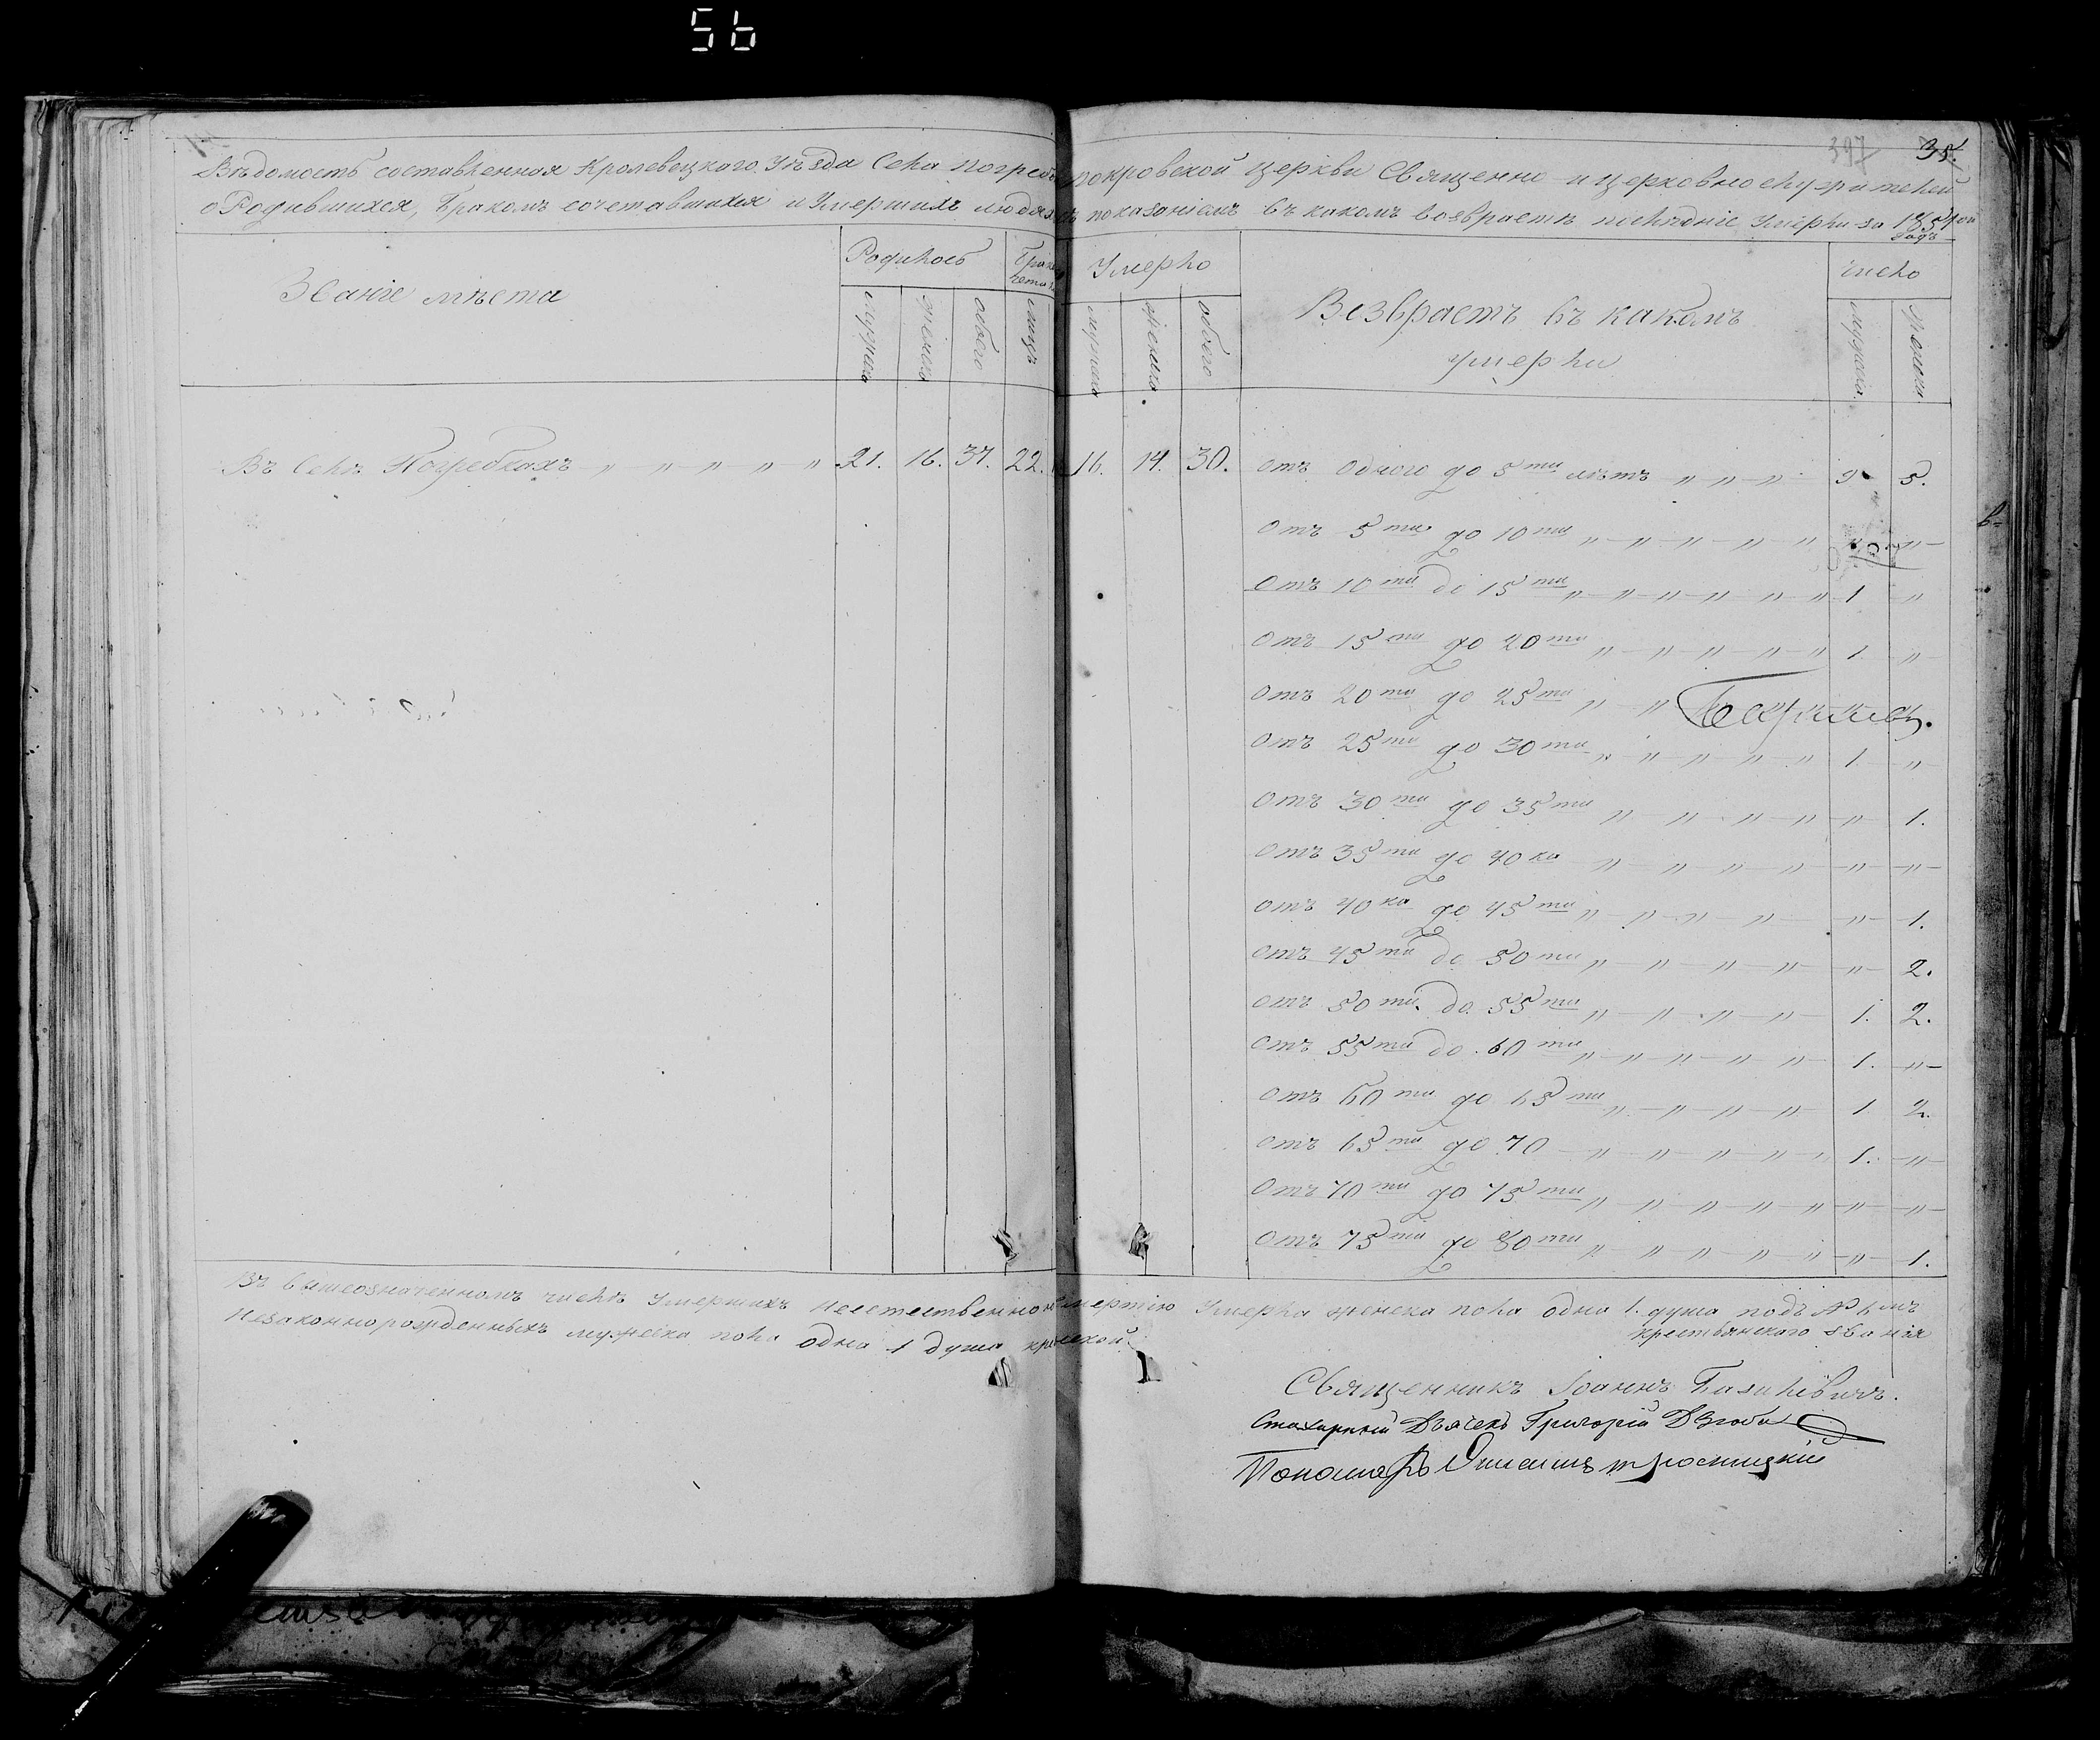 56
397 35.
Вѣдомость составленная Кролевецкаго Уѣзда Села Погребк покровской церкви Священно и церковнослужителей
о Родившихся, Бракомъ сочетавшихся и Умершихъ людяхъ показаніемъ въ какомъ возврастѣ послѣдніе Умерли за 1851ой
Годъ
Званіе мѣста
Родилось
мужеска
женска
обоего
лицъ
Умерло
мужеска
женска
обоего
Возврастъ въ какомъ
умерли
число
мужеска
женска
Въ Селѣ Погребкахъ „ „ „ „ „ 21. 16. 37. 22. 16. 14. 30. отъ одного до 5ти лѣтъ „ „ „ 9 5.
отъ 5ти до 10ти „ „ „ „ „ „ „
отъ 10ти до 15ти „ „ „ „ „ „ 1 „
отъ 15ти до 20ти „ „ „ „ „ 1. „
отъ 20ти до 25ти „ „
отъ 25ти до 30ти „ „ „ „ „ 1 „
отъ 30ти до 35ти „ „ „ „ „ 1.
отъ 35ти до 40ка „ „ „ „ „ „
отъ 40ка до 45ти „ „ „ „ „ 1.
отъ 45ти до 50ти „ „ „ „ „ 2.
отъ 50ти до 55ти „ „ „ „ 1. 2.
отъ 55ти до 60ти „ „ „ „ „ 1. „
отъ 60ти до 65ти „ „ „ „ 1 2.
отъ 65ти до 70 „ „ „ „ „ 1. „
отъ 70ти до 75ти „ „ „ „ „ „ „
отъ 75ти до 80ти „ „ „ „ „ „ 1.
Въ вышеозначенномъ числѣ Умершихъ неестественною смертію Умерла женска пола одна 1. душа подъ №
крестьянскаго званія
Незаконнорожденныхъ мужеска пола одна 1 душа
Священникъ Іоаннъ Базилевичъ.
Стихарный Дьячекъ Григорій Дзюба
Пономарь